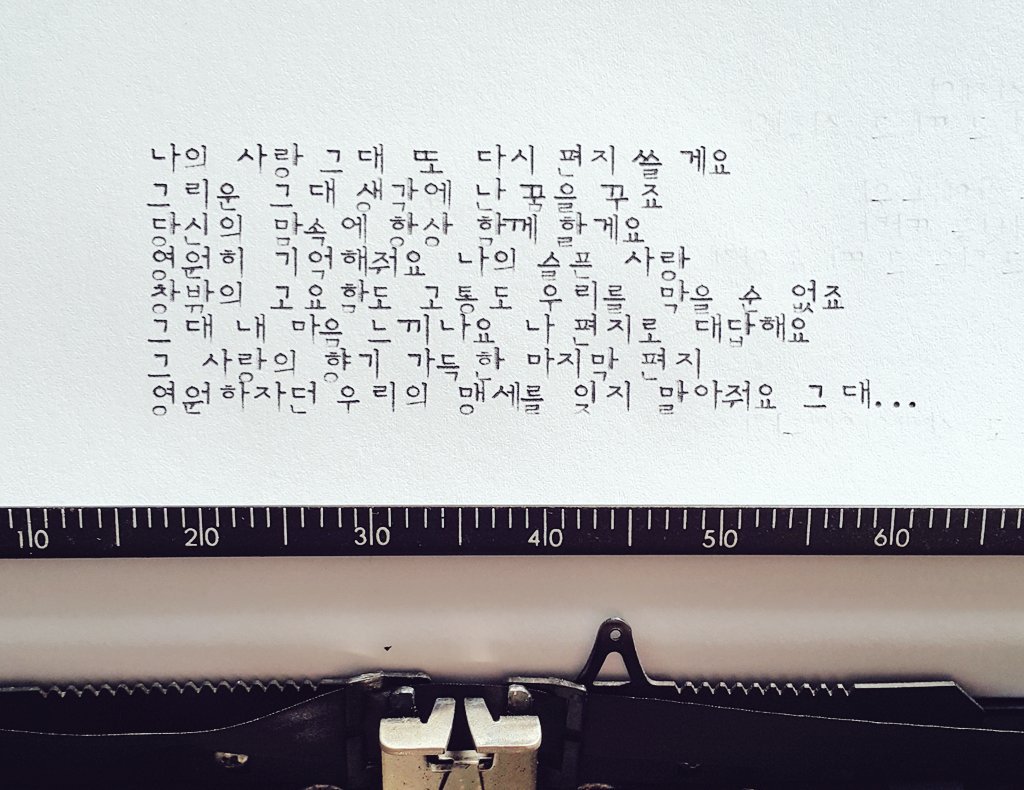 나의 사랑 그대 또 다시 편지 쓸 게요
그리운 그대 생각에 난 꿈을 꾸죠
당신의 맘속에 항상 함께 할게요
영원히 기억해줘요 나의 슬픈 사랑
창밖의 고요함도 고통도 우리를 막을 순 없죠
그대 내 마음 느끼나요 나 편지로 대답해요
그 사랑의 향기 가득한 마지막 편지
영원하자던 우리의 맹세를 잊지 말아줘요 그대...
10 20 30 40 50 60